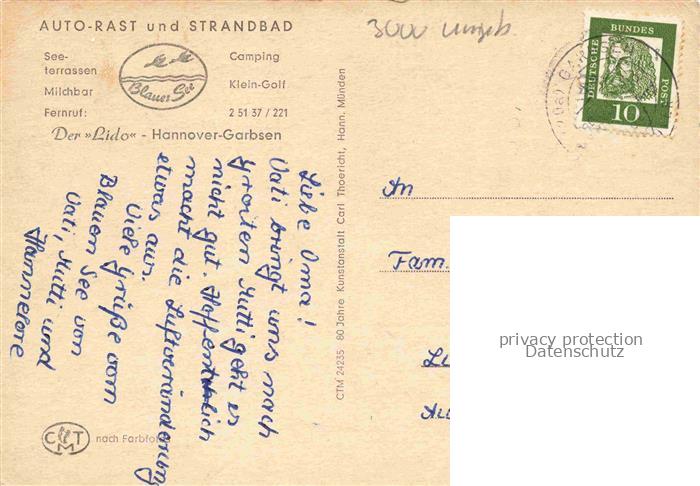 AUTO-RAST und STRANDBAD
See-
terrassen
Milchbar
Fernruf:
Blauer See
Camping
Klein-Golf
2 51 37 / 221
Der »Lido« - Hannover-Garbsen
3000
DEUTSCHE BUNDES POST
10
Liebe Oma!
Vati bringt uns nach
Mutti geht es
nicht gut. Hoffentlich
macht die Luftveränderung
etwas aus.
Viele Grüße vom
Blauen See von
Vati, Mutti und
Hannelore
CTM 24235 80 Jahre Kunstanstalt Carl Thoericht, Hann. Münden
An
Fam.
CTM
nach Farbfoto
privacy protection
Datenschutz